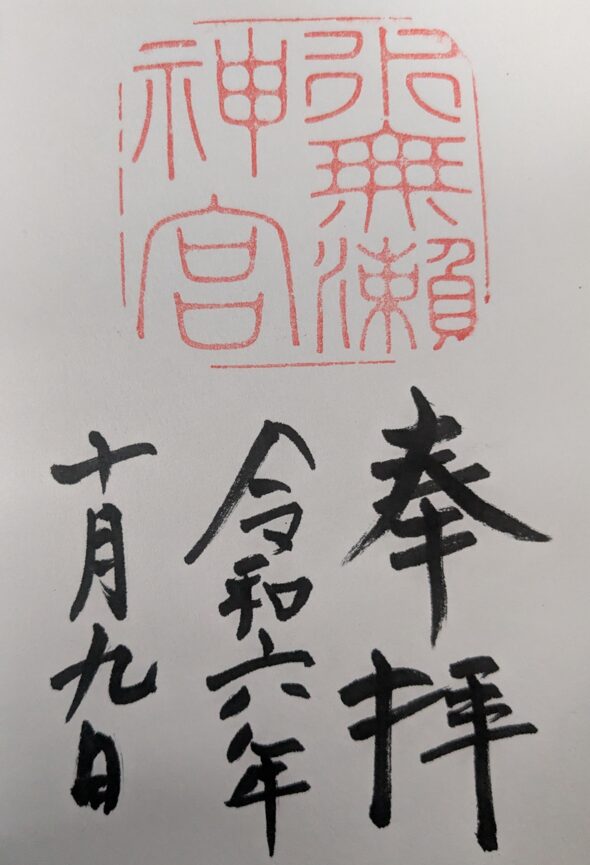 水無瀬
神宮
奉拝
令和六年
十月九日